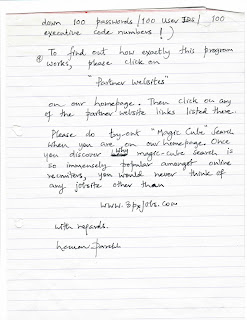 down 100 passwords / 100 user IDs / 100
executive code numbers !)
To find out how exactly this program
works, please click on
"Partner Websites"
on our homepage. Then click on any
of the partner website links listed there.
Please do try-out "Magic Cube" Search
when you are on our homepage. Once
you discover why magic-cube search is
so immensely popular amongst online
recruiters, you would never think of
any jobsite other than
www.3pjobs.com
with regards.